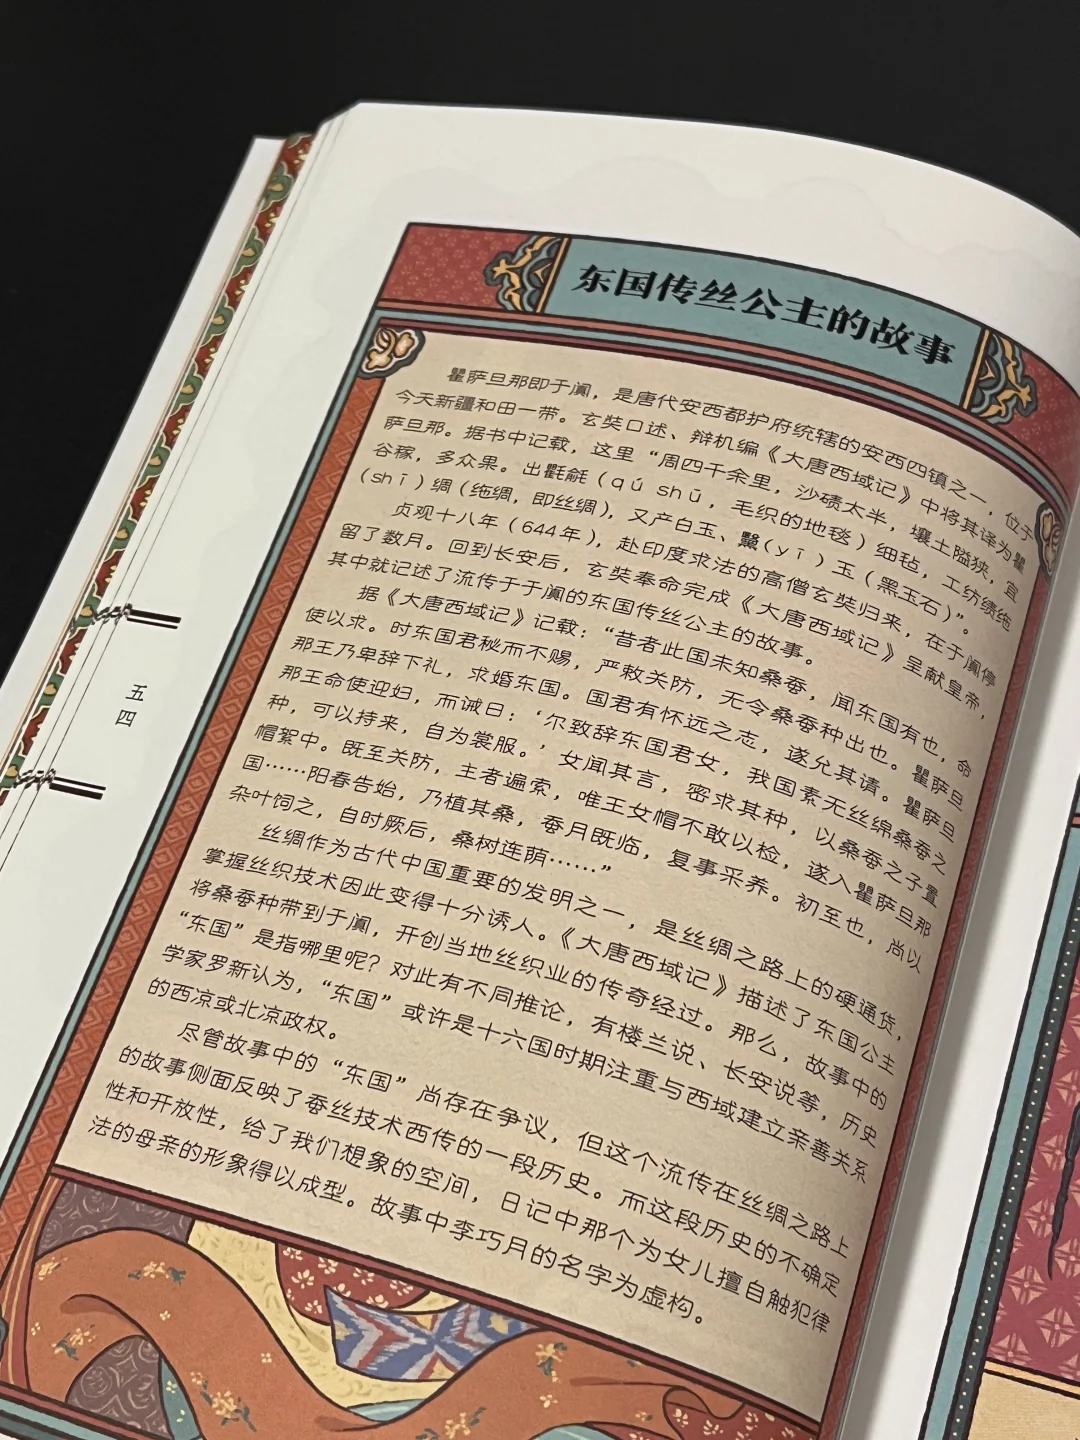 东国传丝公主的故事
瞿萨旦那即于阗，是唐代安西都护府统辖的安西四镇之一，位于
今天新疆和田一带。玄奘口述、辩机编《大唐西域记》中将其译为瞿
萨旦那。据书中记载，这里“周四千余里，沙碛太半，壤土隘狭，宜
谷稼，多众果。出氍毹（qú shū，毛织的地毯）细毡，工纺绩絁
（shī）绸（絁绸，即丝绸），又产白玉、黳（yī）玉（黑玉石）”。
贞观十八年（644年），赴印度求法的高僧玄奘归来，在于阗停
留了数月。回到长安后，玄奘奉命完成《大唐西域记》呈献皇帝，
其中就记述了流传于于阗的东国传丝公主的故事。
据《大唐西域记》记载：“昔者此国未知桑蚕，闻东国有也，命
使以求。时东国君秘而不赐，严敕关防，无令桑蚕种出也。瞿萨旦
那王乃卑辞下礼，求婚东国。国君有怀远之志，遂允其请。瞿萨旦
那王命使迎妇，而诫曰：‘尔致辞东国君女，我国素无丝绵桑蚕之
种，可以持来，自为裳服。’女闻其言，密求其种，以桑蚕之子置
帽絮中。既至关防，主者遍索，唯王女帽不敢以检，遂入瞿萨旦那
国……阳春告始，乃植其桑，蚕月既临，复事采养。初至也，尚以
杂叶饲之，自时厥后，桑树连荫……”
丝绸作为古代中国重要的发明之一，是丝绸之路上的硬通货，
掌握丝织技术因此变得十分诱人。《大唐西域记》描述了东国公主
将桑蚕种带到于阗，开创当地丝织业的传奇经过。那么，故事中的
“东国”是指哪里呢？对此有不同推论，有楼兰说、长安说等，历史
学家罗新认为，“东国”或许是十六国时期注重与西域建立亲善关系
的西凉或北凉政权。
尽管故事中的“东国”尚存在争议，但这个流传在丝绸之路上
的故事侧面反映了蚕丝技术西传的一段历史。而这段历史的不确定
性和开放性，给了我们想象的空间，日记中那个为女儿擅自触犯律
法的母亲的形象得以成型。故事中李巧月的名字为虚构。
五
四